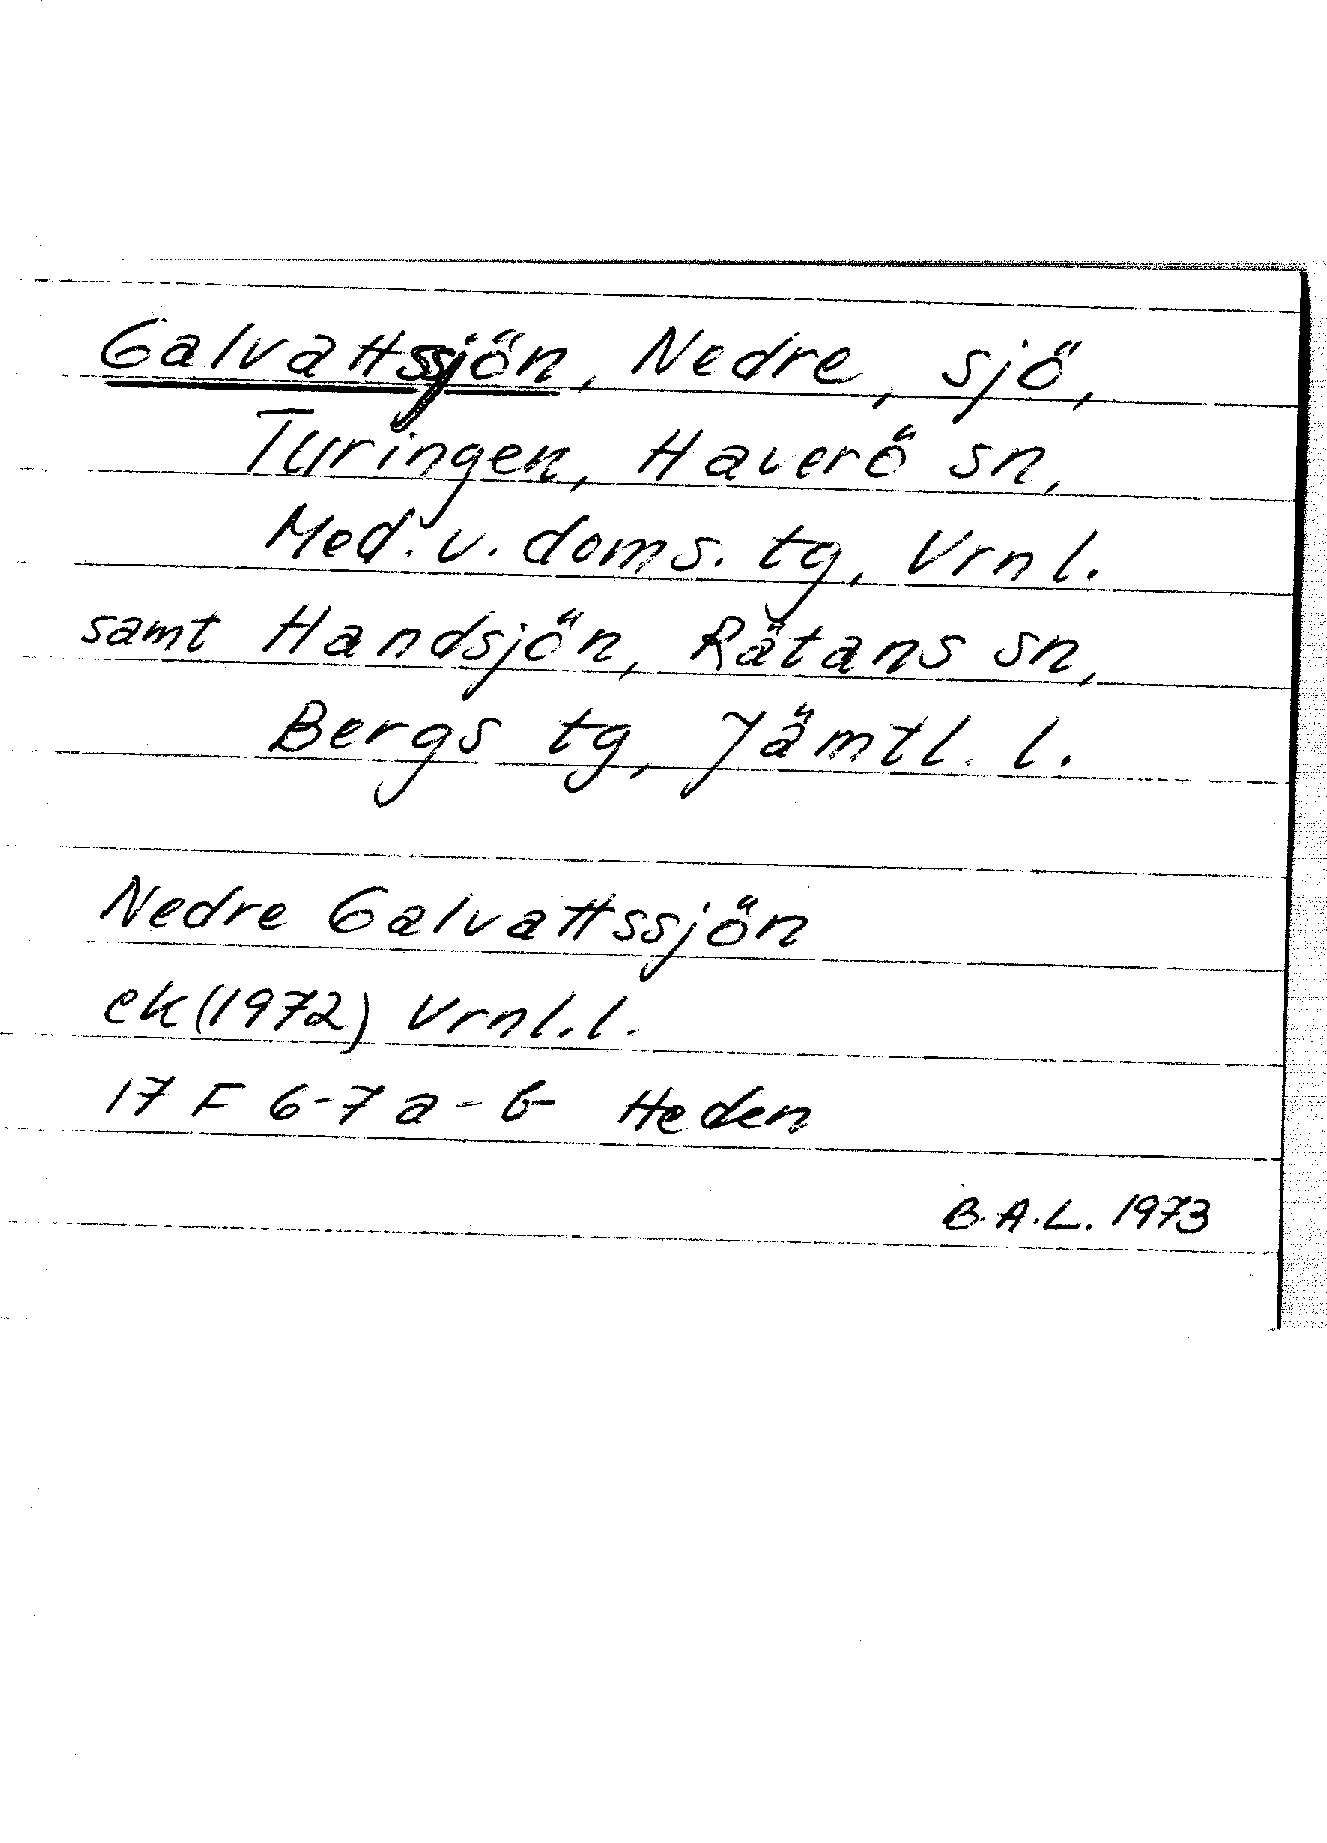 Galvattssjön, Nedre, sjö,
Turingen, Haverö sn,
Med. v. doms. tg, Vrnl.
samt Handsjön, Rätans sn,
Bergs tg, Jämtl. l.
Nedre Galvattssjön
ek (1972) Vrnl. l.
17 F 6-7 a-b Heden
B.A.L. 1973